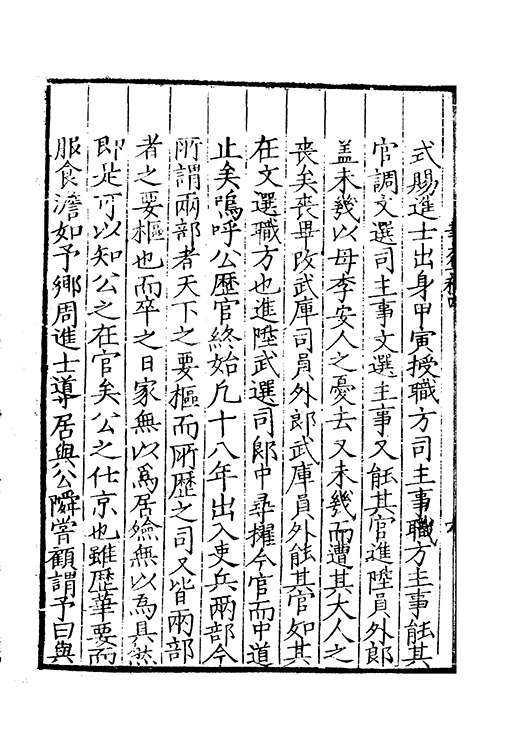 式賜進士出身甲寅授職方司主事職方主事能其
官調文選司主事文選主事又能其官進陞員外郎
盖未幾以母李安人之憂去又未幾而遭其大人之
喪矣喪畢改武庫司員外郎武庫員外能其官如其
在文選職方也進陞武選司郎中尋擢今官而中道
止矣嗚呼公歷官終始凢十八年出入吏兵兩部今
所謂兩部者天下之要樞而所歷之司又皆兩部
者之要樞也而卒之日家無以爲居殮無以為具然
即是可以知公之在官矣公之仕京也雖歷華要而
服食澹如予鄉周進士導居與公隣嘗顧謂予曰與